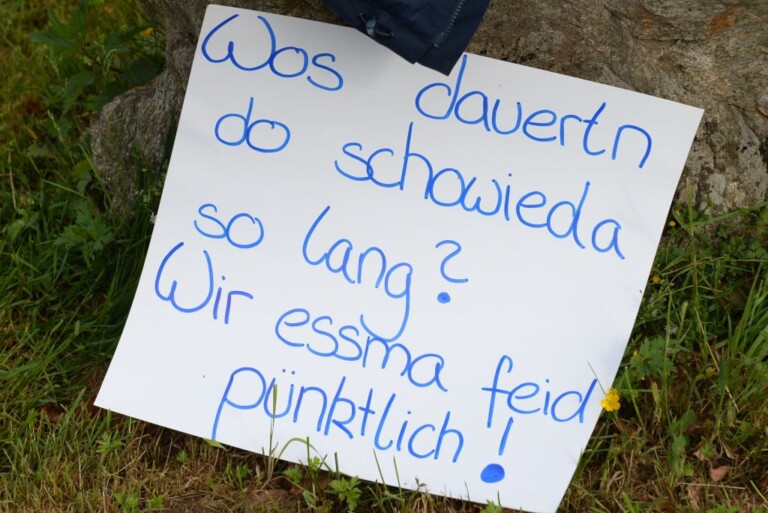 Wos dauertn
do schowieda
so lang?
Wir essma feid
pünktlich!